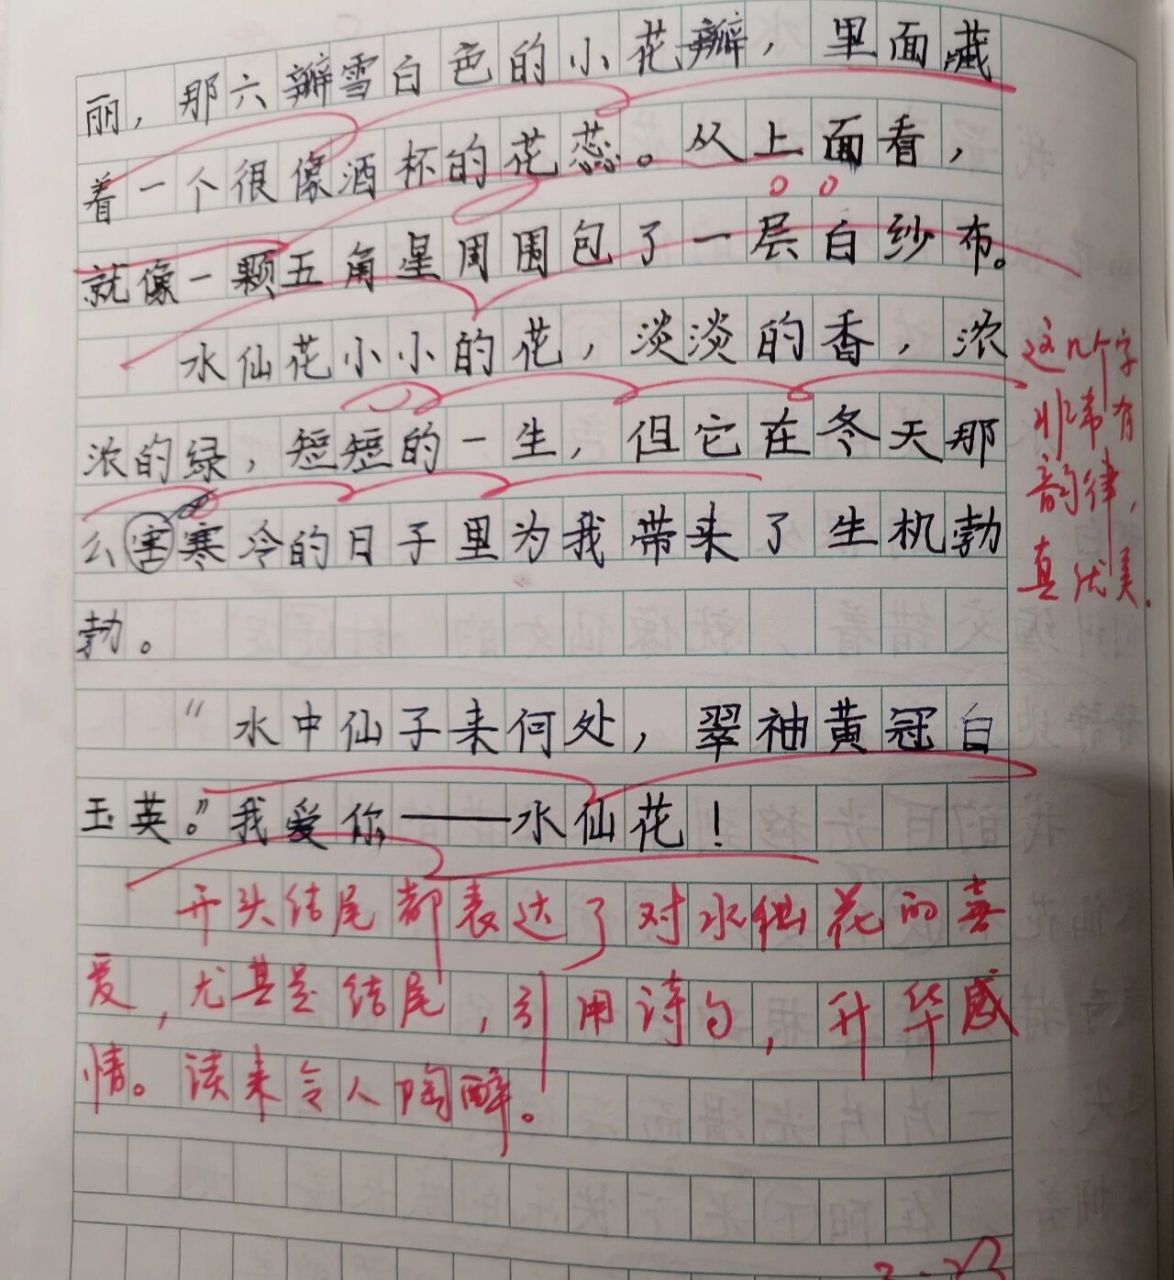 丽，那六瓣雪白色的小花瓣，里面藏
着一个很像酒杯的花蕊。从上面看，
就像一颗五角星周围包了一层白纱布。
水仙花小小的花，淡淡的香，浓
浓的绿，短短的一生，但它在冬天那
么寒冷的日子里为我带来了生机勃
勃。
“水中仙子来何处，翠袖黄冠白
玉英。”我爱你——水仙花！
这几个字
非常有
韵律，
真优美.
开头结尾都表达了对水仙花的喜
爱，尤其是结尾，引用诗句，升华感
情。读来令人陶醉。